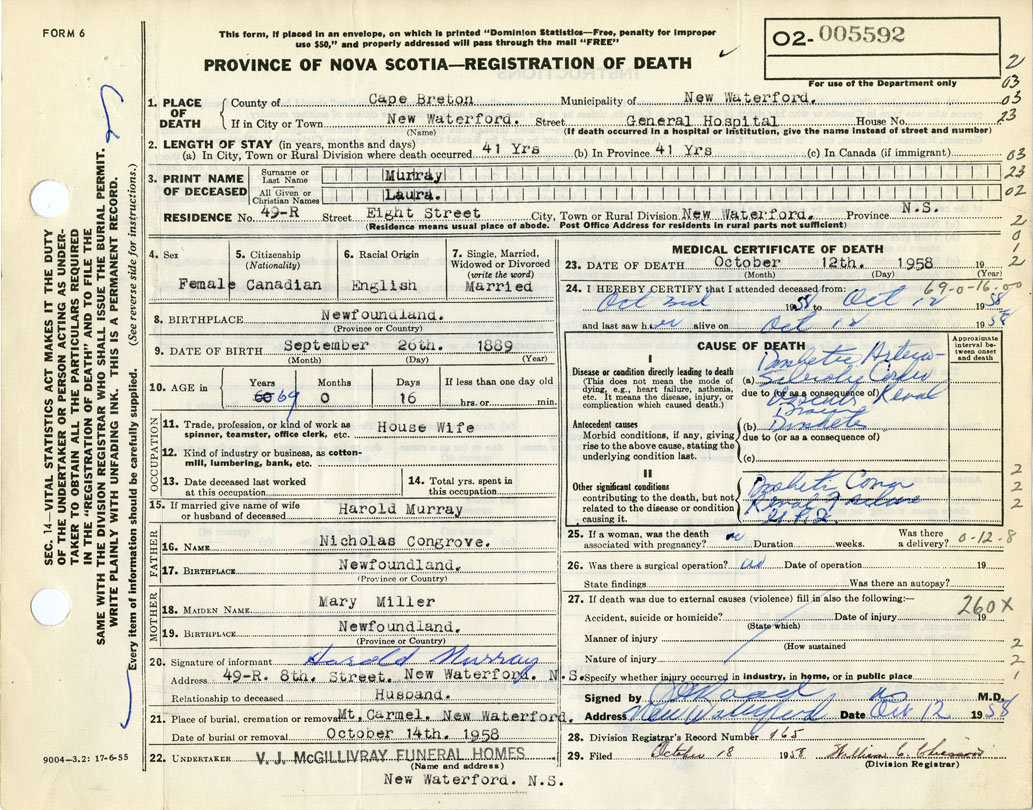 FORM 6
This form, if placed in an envelope, on which is printed "Dominion Statistics—Free, penalty for improper
use $50," and properly addressed will pass through the mail "FREE"
PROVINCE OF NOVA SCOTIA—REGISTRATION OF DEATH
02-005592
For use of the Department only
1. PLACE OF DEATH County of Cape Breton Municipality of New Waterford.
If in City or Town New Waterford. Street General Hospital House No.
(Name) (If death occurred in a hospital or institution, give the name instead of street and number)
2. LENGTH OF STAY (in years, months and days)
(a) In City, Town or Rural Division where death occurred 41 Yrs (b) In Province 41 Yrs (c) In Canada (if immigrant)
3. PRINT NAME OF DECEASED Surname or Last Name Murray
All Given or Christian Names Laura.
RESIDENCE No. 49-R Street Eight Street City, Town or Rural Division New Waterford. Province N.S.
(Residence means usual place of abode. Post Office Address for residents in rural parts not sufficient)
4. Sex Female
5. Citizenship (Nationality) Canadian
6. Racial Origin English
7. Single, Married, Widowed or Divorced (write the word) Married
8. BIRTHPLACE Newfoundland.
(Province or Country)
9. DATE OF BIRTH September 26th. 1889
(Month) (Day) (Year)
10. AGE in Years 69 Months 0 Days 16 If less than one day old hrs. or min.
OCCUPATION
11. Trade, profession, or kind of work as spinner, teamster, office clerk, etc. House Wife
12. Kind of industry or business, as cotton-mill, lumbering, bank, etc.
13. Date deceased last worked at this occupation
14. Total yrs. spent in this occupation
15. If married give name of wife or husband of deceased Harold Murray
FATHER
16. NAME Nicholas Congrove.
17. BIRTHPLACE Newfoundland.
(Province or Country)
MOTHER
18. MAIDEN NAME Mary Miller
19. BIRTHPLACE Newfoundland.
(Province or Country)
20. Signature of informant Harold Murray
Address 49-R. 8th. Street. New Waterford. N.S.
Relationship to deceased Husband.
21. Place of burial, cremation or removal Mt. Carmel. New Waterford.
Date of burial or removal October 14th. 1958
22. UNDERTAKER V. J. McGILLIVRAY FUNERAL HOMES
(Name and address)
New Waterford. N.S.
MEDICAL CERTIFICATE OF DEATH
23. DATE OF DEATH October 12th. 1958 19
(Month) (Day) (Year)
69-0-16-00
24. I HEREBY CERTIFY that I attended deceased from:
Oct 2nd 1958 to Oct 12 1958
and last saw her alive on Oct 12 1958
CAUSE OF DEATH
Approximate interval between onset and death
I
Disease or condition directly leading to death
(This does not mean the mode of dying, e.g., heart failure, asthenia, etc. It means the disease, injury, or complication which caused death.)
(a) Diabetic Arterio-
due to (or as a consequence of)
Vascular Renal
Antecedent causes
Morbid conditions, if any, giving rise to the above cause, stating the underlying condition last.
(b) Diabetes
due to (or as a consequence of)
(c)
II
Other significant conditions
contributing to the death, but not related to the disease or condition causing it.
Diabetic Coma
Renal Failure
25. If a woman, was the death associated with pregnancy? no Duration weeks. Was there a delivery? 0-12-8
26. Was there a surgical operation? no Date of operation 19
State findings Was there an autopsy?
27. If death was due to external causes (violence) fill in also the following:—
260X
Accident, suicide or homicide? Date of injury 19
(State which)
Manner of injury
(How sustained
Nature of injury
Specify whether injury occurred in industry, in home, or in public place
Signed by M.D.
Address New Waterford Date Oct 12 1958
28. Division Registrar's Record Number 165
29. Filed October 18 1958 William C.
(Division Registrar)
2
03
03
23
03
23
02
2
0
1
2
2
2
2
2
2
1
SEC. 14—VITAL STATISTICS ACT MAKES IT THE DUTY
OF THE UNDERTAKER OR PERSON ACTING AS UNDER-
TAKER TO OBTAIN ALL THE PARTICULARS REQUIRED
IN THE "REGISTRATION OF DEATH" AND TO FILE THE
SAME WITH THE DIVISION REGISTRAR WHO SHALL ISSUE THE BURIAL PERMIT.
WRITE PLAINLY WITH UNFADING INK. THIS IS A PERMANENT RECORD.
Every item of information should be carefully supplied. (See reverse side for instructions.)
9004—3.2: 17-6-55